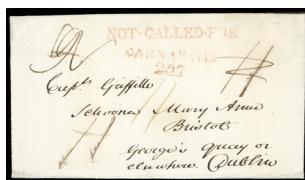 NOT·CALLED·FOR
CARNARVON
Capt. Griffith
Schooner Mary Anne
Bristol
George's quay or
elsewhere Dublin